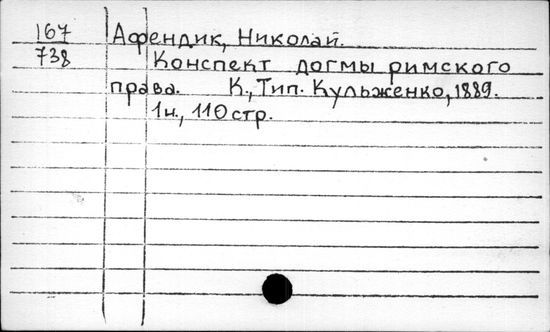 167 Афендик, Николай.
738 Конспект догмы римского
права. К., Тип. Кульженко, 1889.
1н., 110 стр.